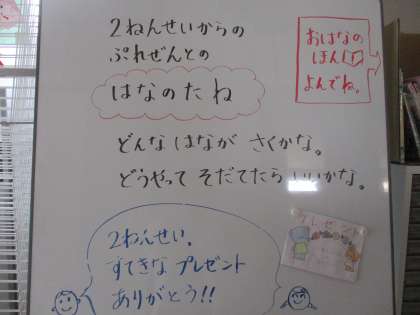 2ねんせいからの
ぷれぜんとの
はなのたね
おはなの
ほん
よんでね。
どんな はなが さくかな。
どうやって そだてたら いいかな。
プレゼント
2ねんせい、
すてきな プレゼント
ありがとう!!